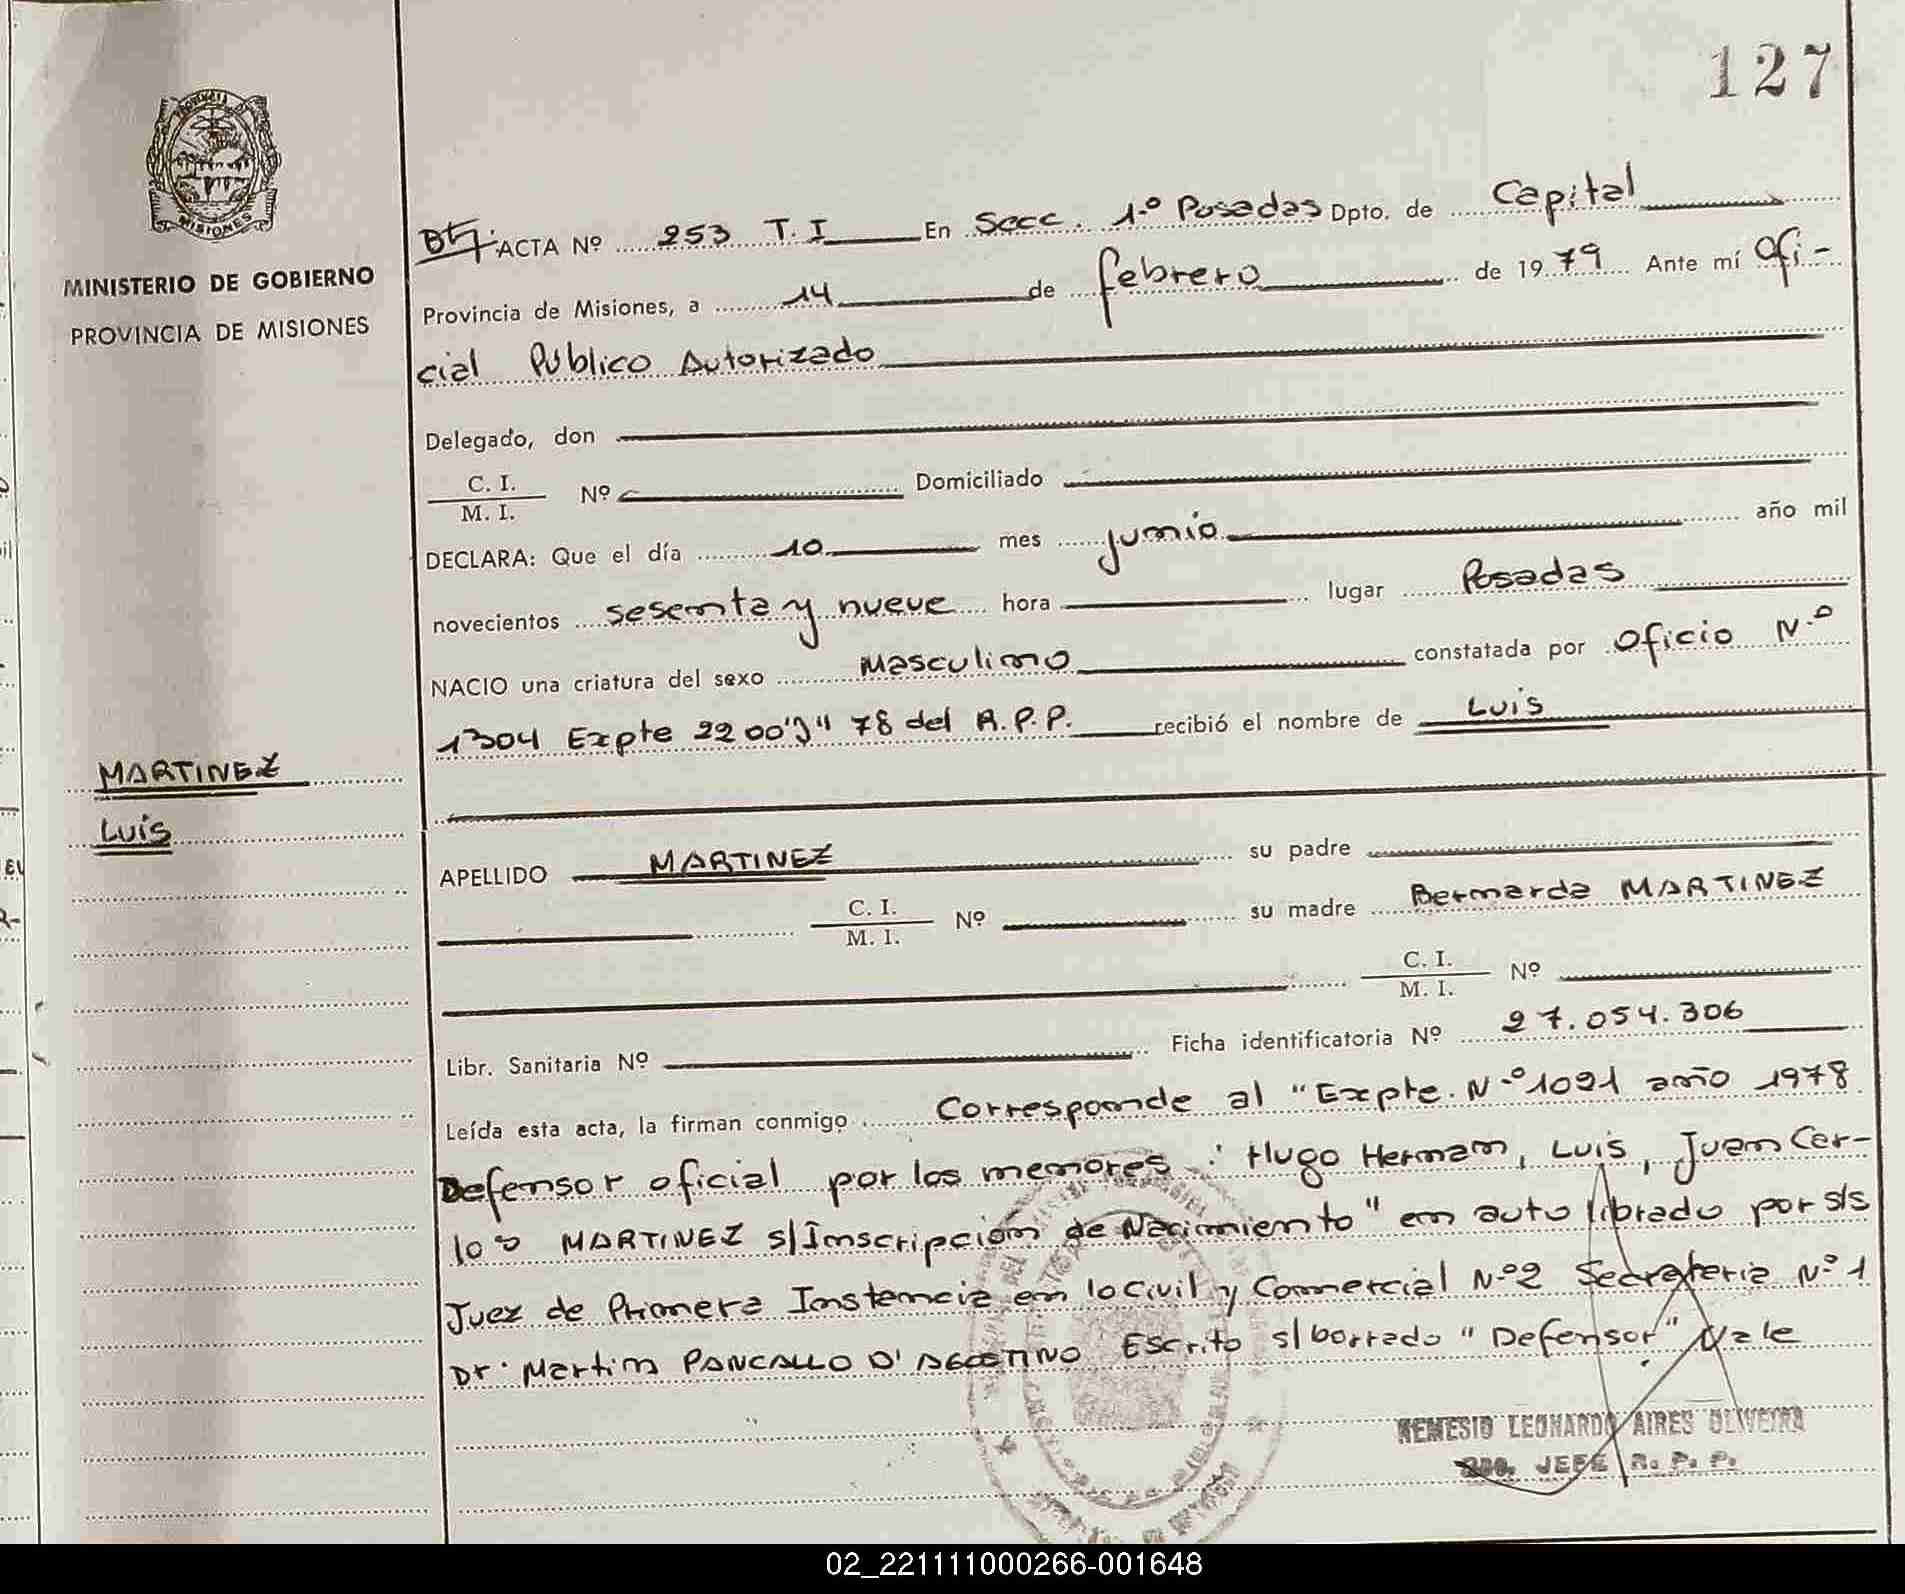 127
PROVINCIA DE
MISIONES
MINISTERIO DE GOBIERNO
PROVINCIA DE MISIONES
ACTA Nº 253 T. I En Secc. 1º Posadas Dpto. de Capital
Provincia de Misiones, a 14 de febrero de 1979 Ante mí Ofi-
cial Público Autorizado
Delegado, don
C. I.
M. I. Nº Domiciliado
DECLARA: Que el día 10 mes junio año mil
novecientos sesenta y nueve hora lugar Posadas
NACIO una criatura del sexo Masculino constatada por Oficio Nº
1304 Expte 2200"J" 78 del R.P.P. recibió el nombre de Luis
MARTINEZ
Luis
APELLIDO MARTINEZ su padre
C. I.
M. I. Nº su madre Bernarda MARTINEZ
C. I.
M. I. Nº
Libr. Sanitaria Nº Ficha identificatoria Nº 27.054.306
Leída esta acta, la firman conmigo Corresponde al "Expte. Nº 1021 año 1978
Defensor oficial por los menores: Hugo Hernan, Luis, Juan Car-
los MARTINEZ s/Inscripción de Nacimiento" en auto librado por s/s
Juez de Primera Instancia en lo Civil y Comercial Nº 2 Secretaria Nº 1
Dr. Martin PANCALLO D'AGOSTINO Escrito s/borrado "Defensor" Vale
NEMESIO LEONARDO AIRES OLIVEIRA
JEFE R. P. P.
02_221111000266-001648